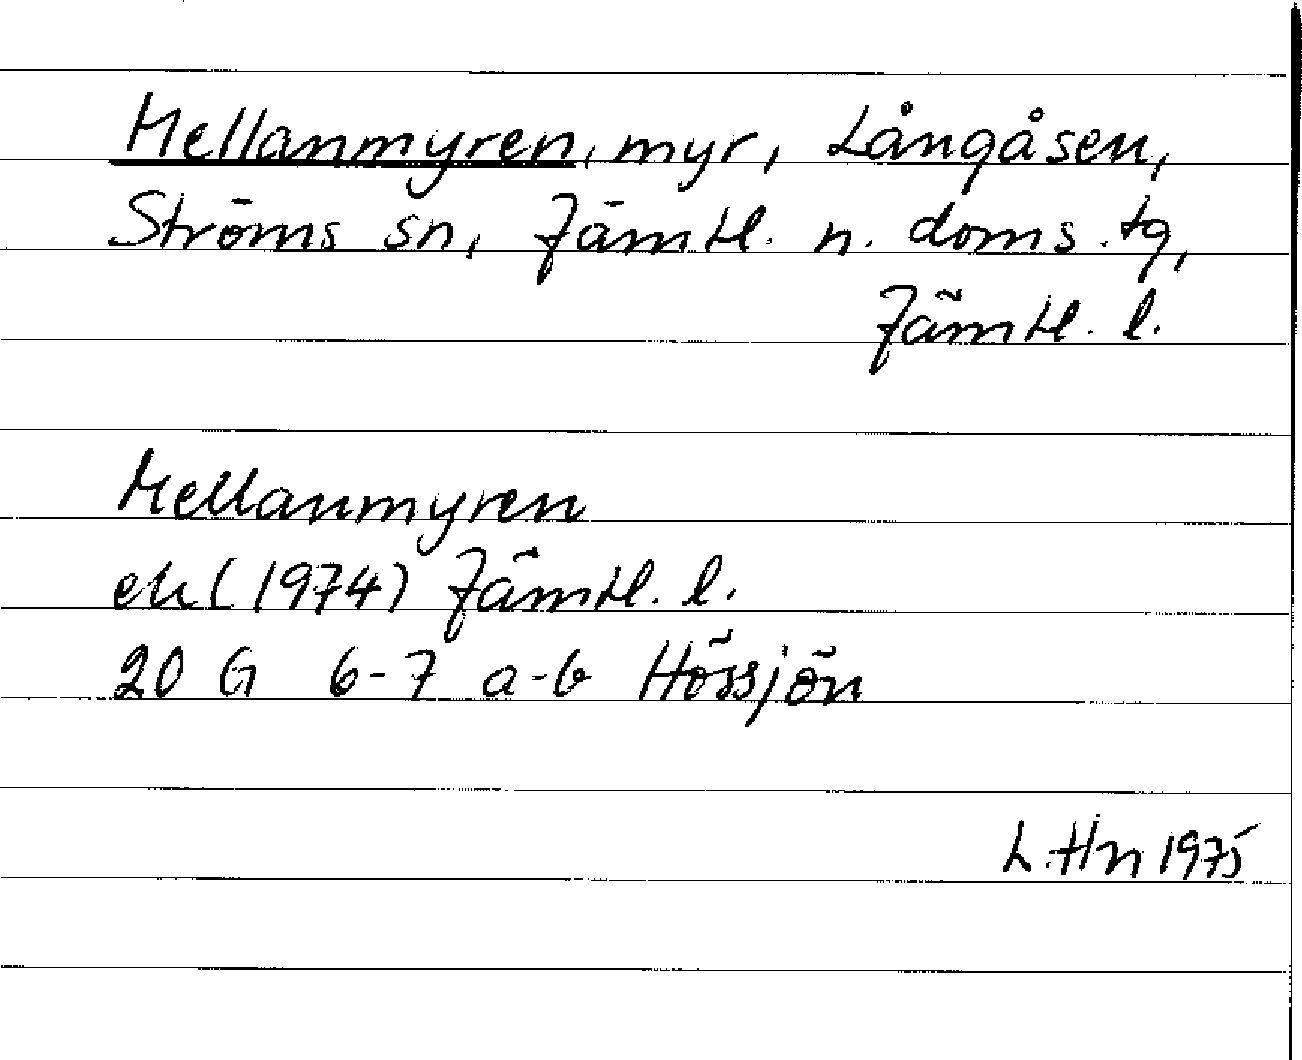 Mellanmyren, myr, Långåsen,
Ströms sn, Jämtl. n. doms.tg,
Jämtl. l.
Mellanmyren
ek (1974) Jämtl. l.
20 G 6-7 a-b Hössjön
L.Hn 1975